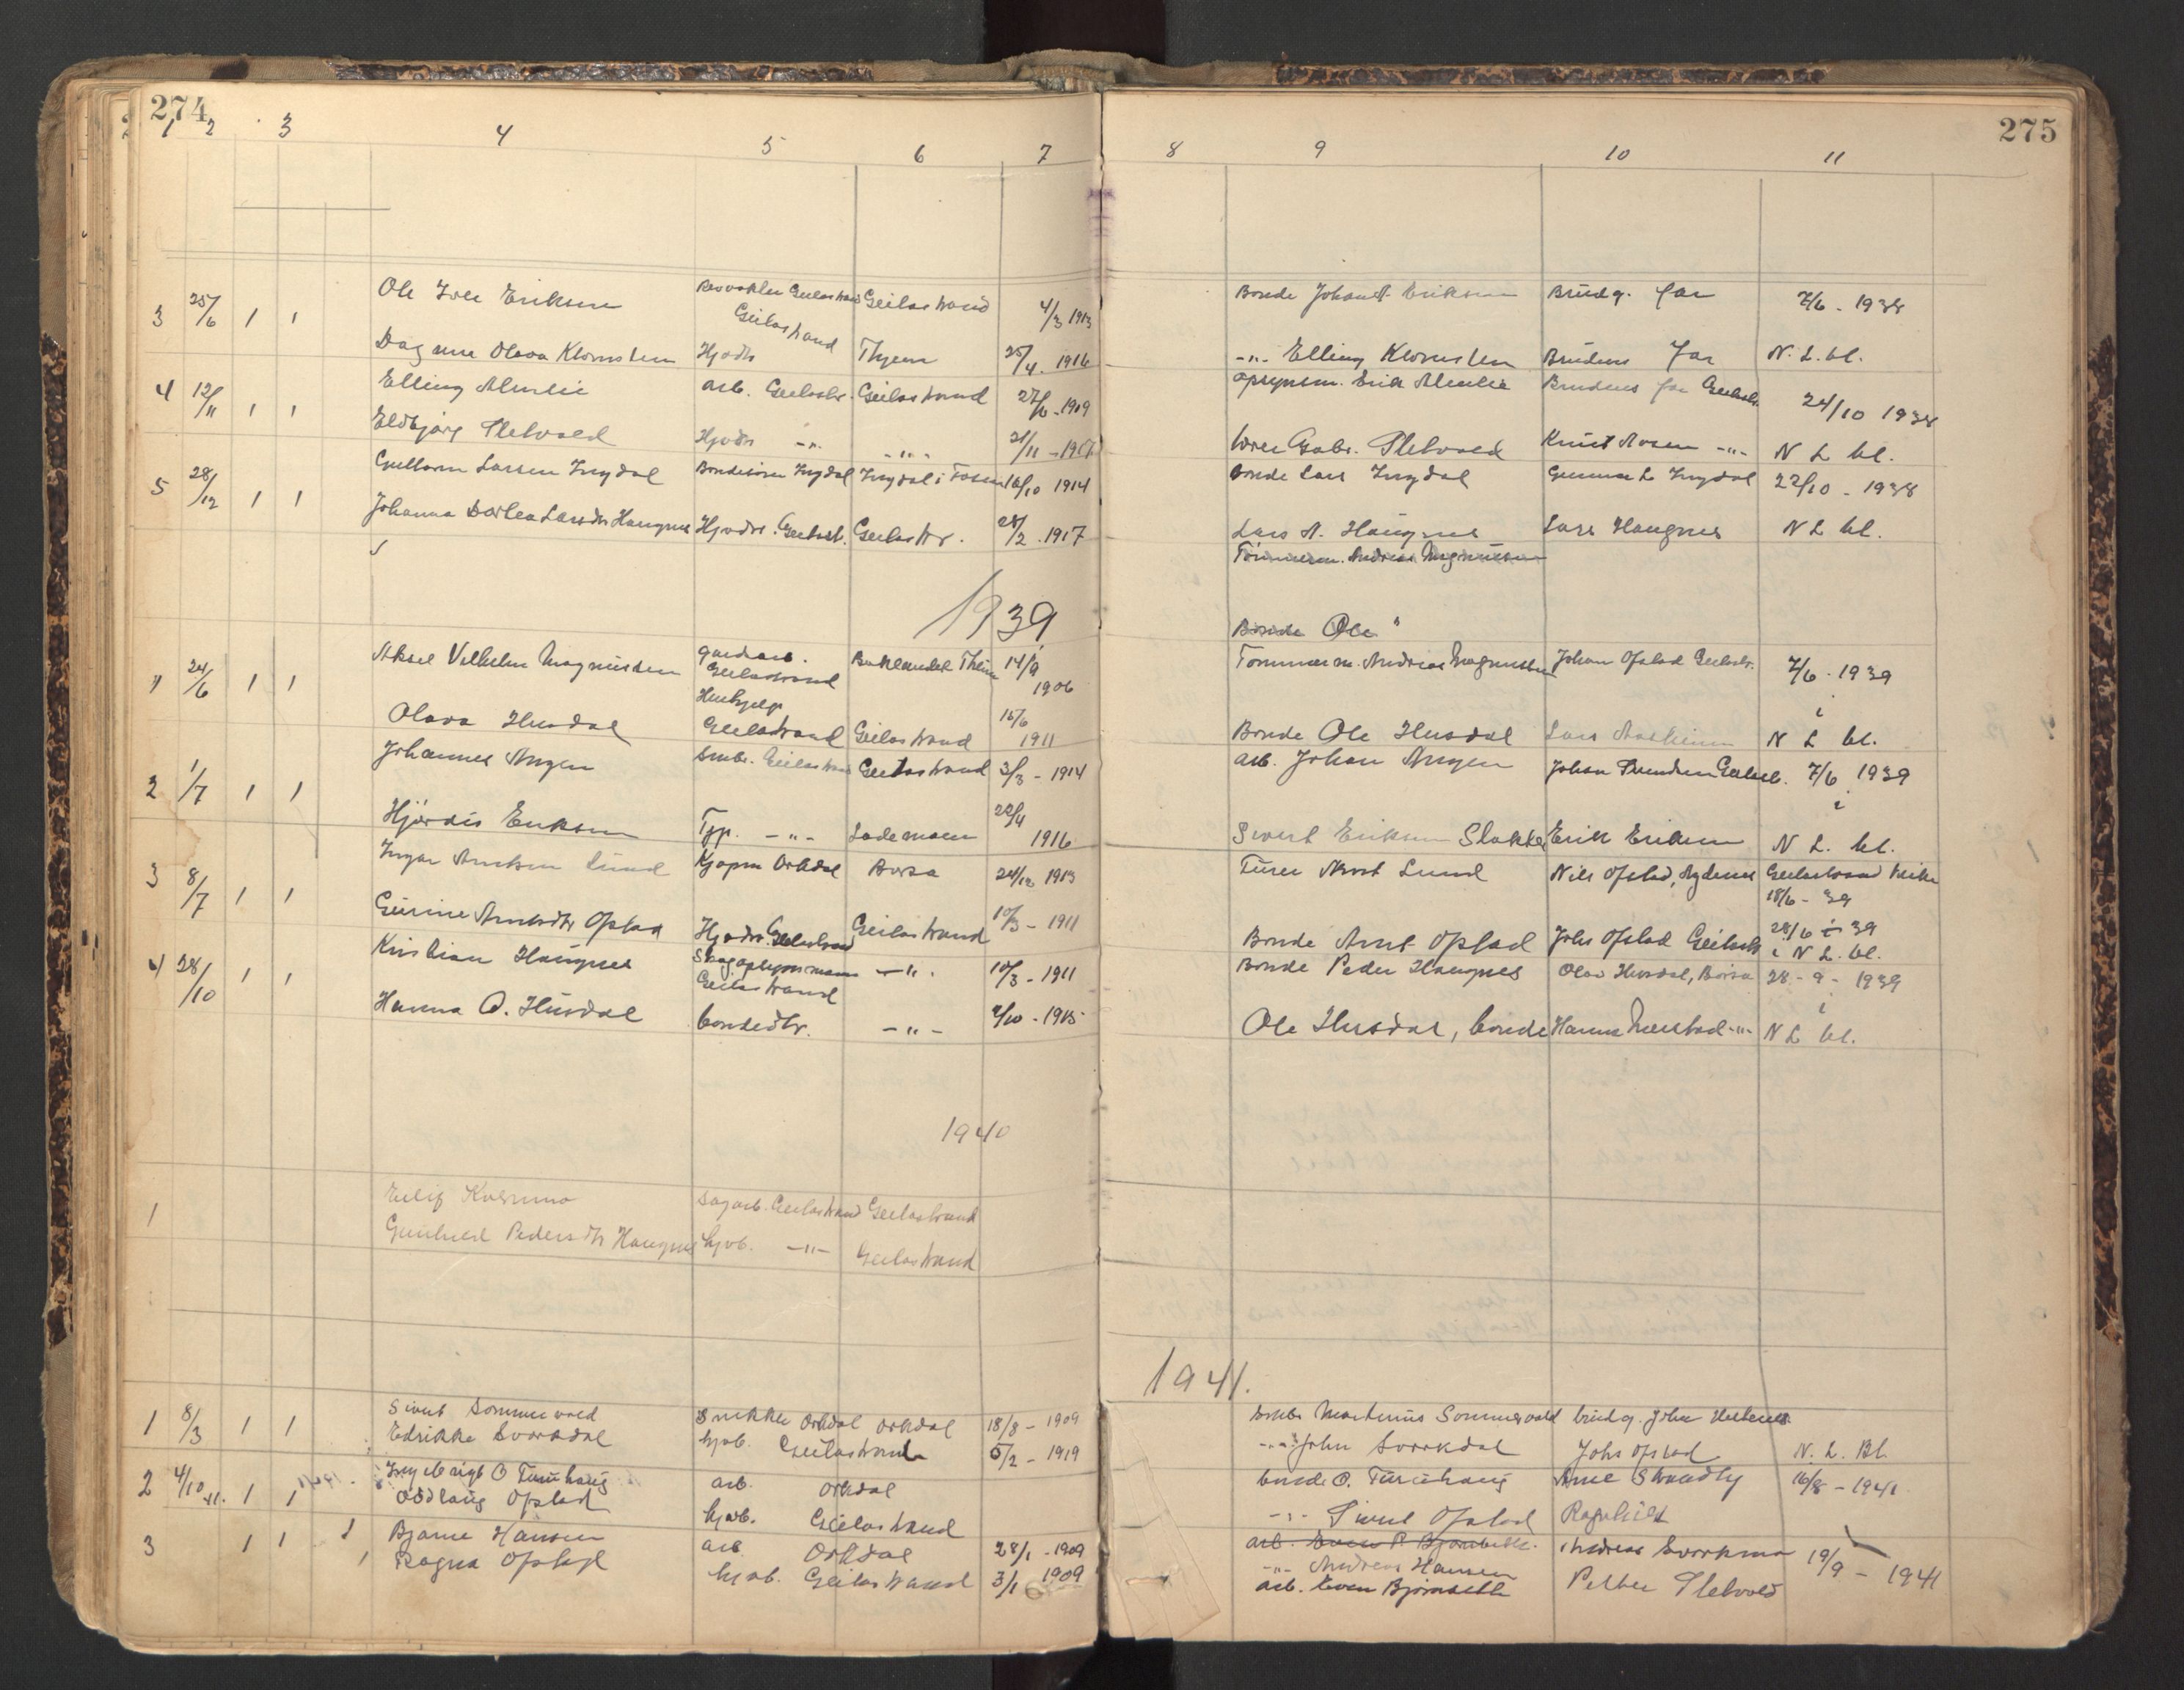 274
275
1 2 3 4 5 6 7 8 9 10 11
3 25/6 1 1 Ole Eriksen Geilostrand 4/3 1913 Bonde Johan Eriksen Brudg. far 7/6 - 1938
Geilostrand
Dagny Olava Klomsten Hjvdtr Thjem 25/4. 1916 -"- Elling Klomsten Brudens far N. L. bl.
4 12/11 1 1 Elling Almlie arb. Geilostr. Geilostrand 27/6 - 1909 opsynsm. Erik Almlie Brudens far Geilostr. 24/10 1938
Eldbjørg Pletvold Hjvdtr -"- -"- 21/11 - Gabr. Pletvold Knut Mosen -"- N L bl.
5 28/12 1 1 Guttorm Larsen Ingdal Bondesøn Ingdal Ingdal i Fosen 16/10 1914 bonde Lars Ingdal Gunnar L Ingdal 22/10 - 1938
Johanna Dorthea Larsdtr Haugnes Hjvdtr. Geilostr. Geilostr. 28/2 . 1917 Lars A. Haugnes Lars Haugnes N L bl.
Tømmerm. Andreas Magnussen
1939
Bonde Ole "
1 24/6 1 1 Aksel Vilhelm Magnussen gardsarb. Geilostrand Baklandet Thjem 14/9 1906 Tømmerm. Andreas Magnussen Johan Opstad Geilostr. 7/6 . 1939
Olava Husdal Hushjelp Geilostrand Geilostrand 15/6 1911 Bonde Ole Husdal Lars N L bl.
2 1/7 1 1 Johannes Angen Smbr. Geilostrand Geilostrand 3/3 - 1914 arb. Johan Angen Johan 7/6 1939
Hjørdis Eriksen Tjp. -"- Lademoen 22/4 1916 Sivert Eriksen Slokker Erik Eriksen N L. bl.
3 8/7 1 1 Ingar Arntsen Lund Kjøpm Orkdal Børsa 24/12 1913 Arnt Lund Nils Opstad, Geilostrand kirke
18/6 - 39
Gurine Arntsdtr Opstad Hjvdtr. Geilostrand Geilostrand 10/3 - 1911 Bonde Arnt Opstad Johs Opstad Geilostr 28/6 - 39 i N L. bl.
4 28/10 1 1 Kristian Haugnes Skogopsynsmann Geilostrand -"- 10/3 - 1911 Bonde Peder Haugnes Olav Husdal, Børsa 28 - 9 - 1939
Hanna O. Husdal bondedtr. -"- 2/10 - 1915 Ole Husdal, bonde Hanna -"- i N L bl.
1940
1 Eilif Kvernmo Sagarb. Geilostrand Geilostrand
Gunhild Pedersdtr Haugnes hjvb. -"- Geilostrand
1941.
1 8/3 1 1 Sivert Sommervold Snekker Orkdal Orkdal 18/8 - 1909 Smbr Martinus Sommervold brudg. John
Edrikke Svorkdal hjvb. Geilostrand 5/2 - 1919 -"- John Svorkdal Johs Opstad N. L. Bl.
2 4/10 41. 1 1 Ingebrigt O arb. Orkdal bonde O. Arne Strandly 16/8 - 1941
Oddlaug Opstad hjvb. Geilostrand -"- Sivert Opstad Ragnhild
3 1 1 1 Bjarne Hansen arb Orkdal 28/1 - 1909 arb. Even P. Bjørnbeth. Andreas Svorkmo 19/9 - 1941
-"- Andreas Hansen
1 Ragna Opstad hjvb. Geilostrand 3/1 1909 arb. Even Bjørnbeth Petter Pletvold